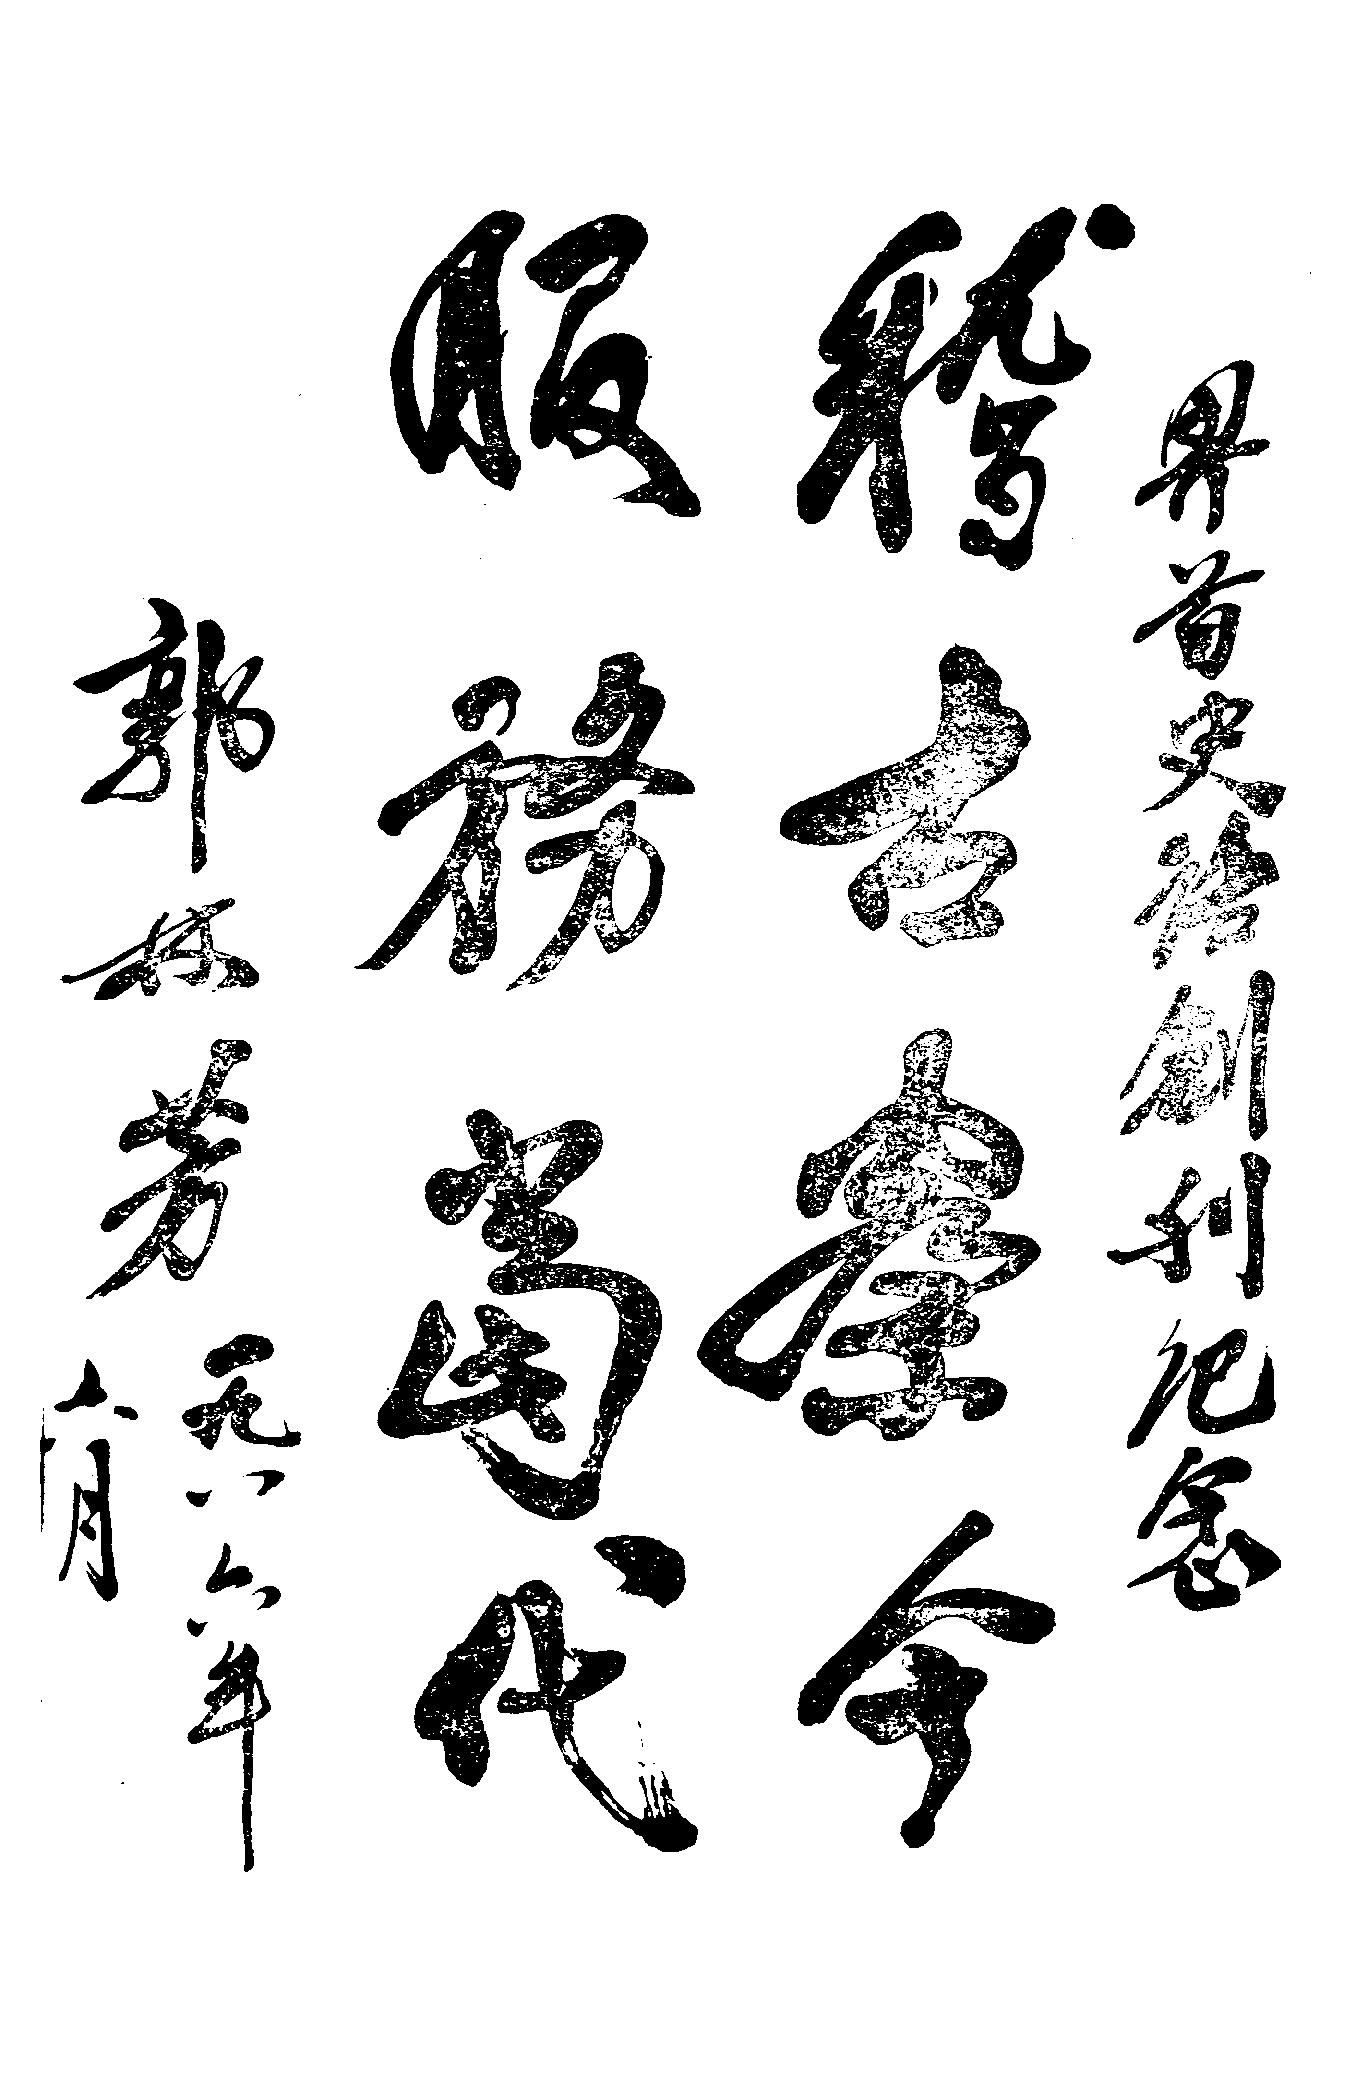 界首史话創刊纪念
稽古察今
服務當代
郭林芳
一九八六年
六月